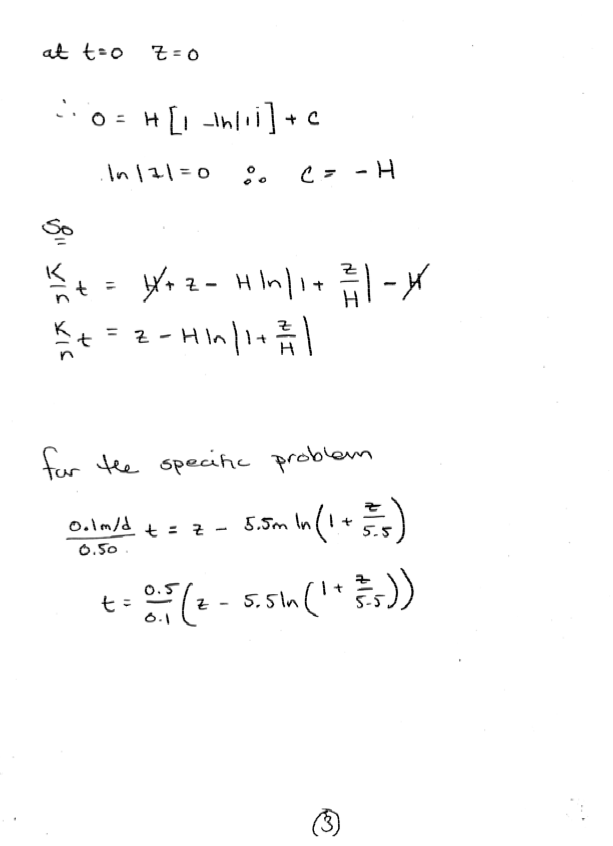 at t=0 z=0
∴ 0 = H[1 - ln|1|] + C
ln|1|=0 ∴ C = -H
So
K/n t = H + z - H ln|1 + z/H| - H
K/n t = z - H ln|1 + z/H|
for the specific problem
0.1m/d / 0.50 t = z - 5.5m ln(1 + z/5.5)
t = 0.5/0.1 (z - 5.5 ln(1 + z/5.5))
(3)